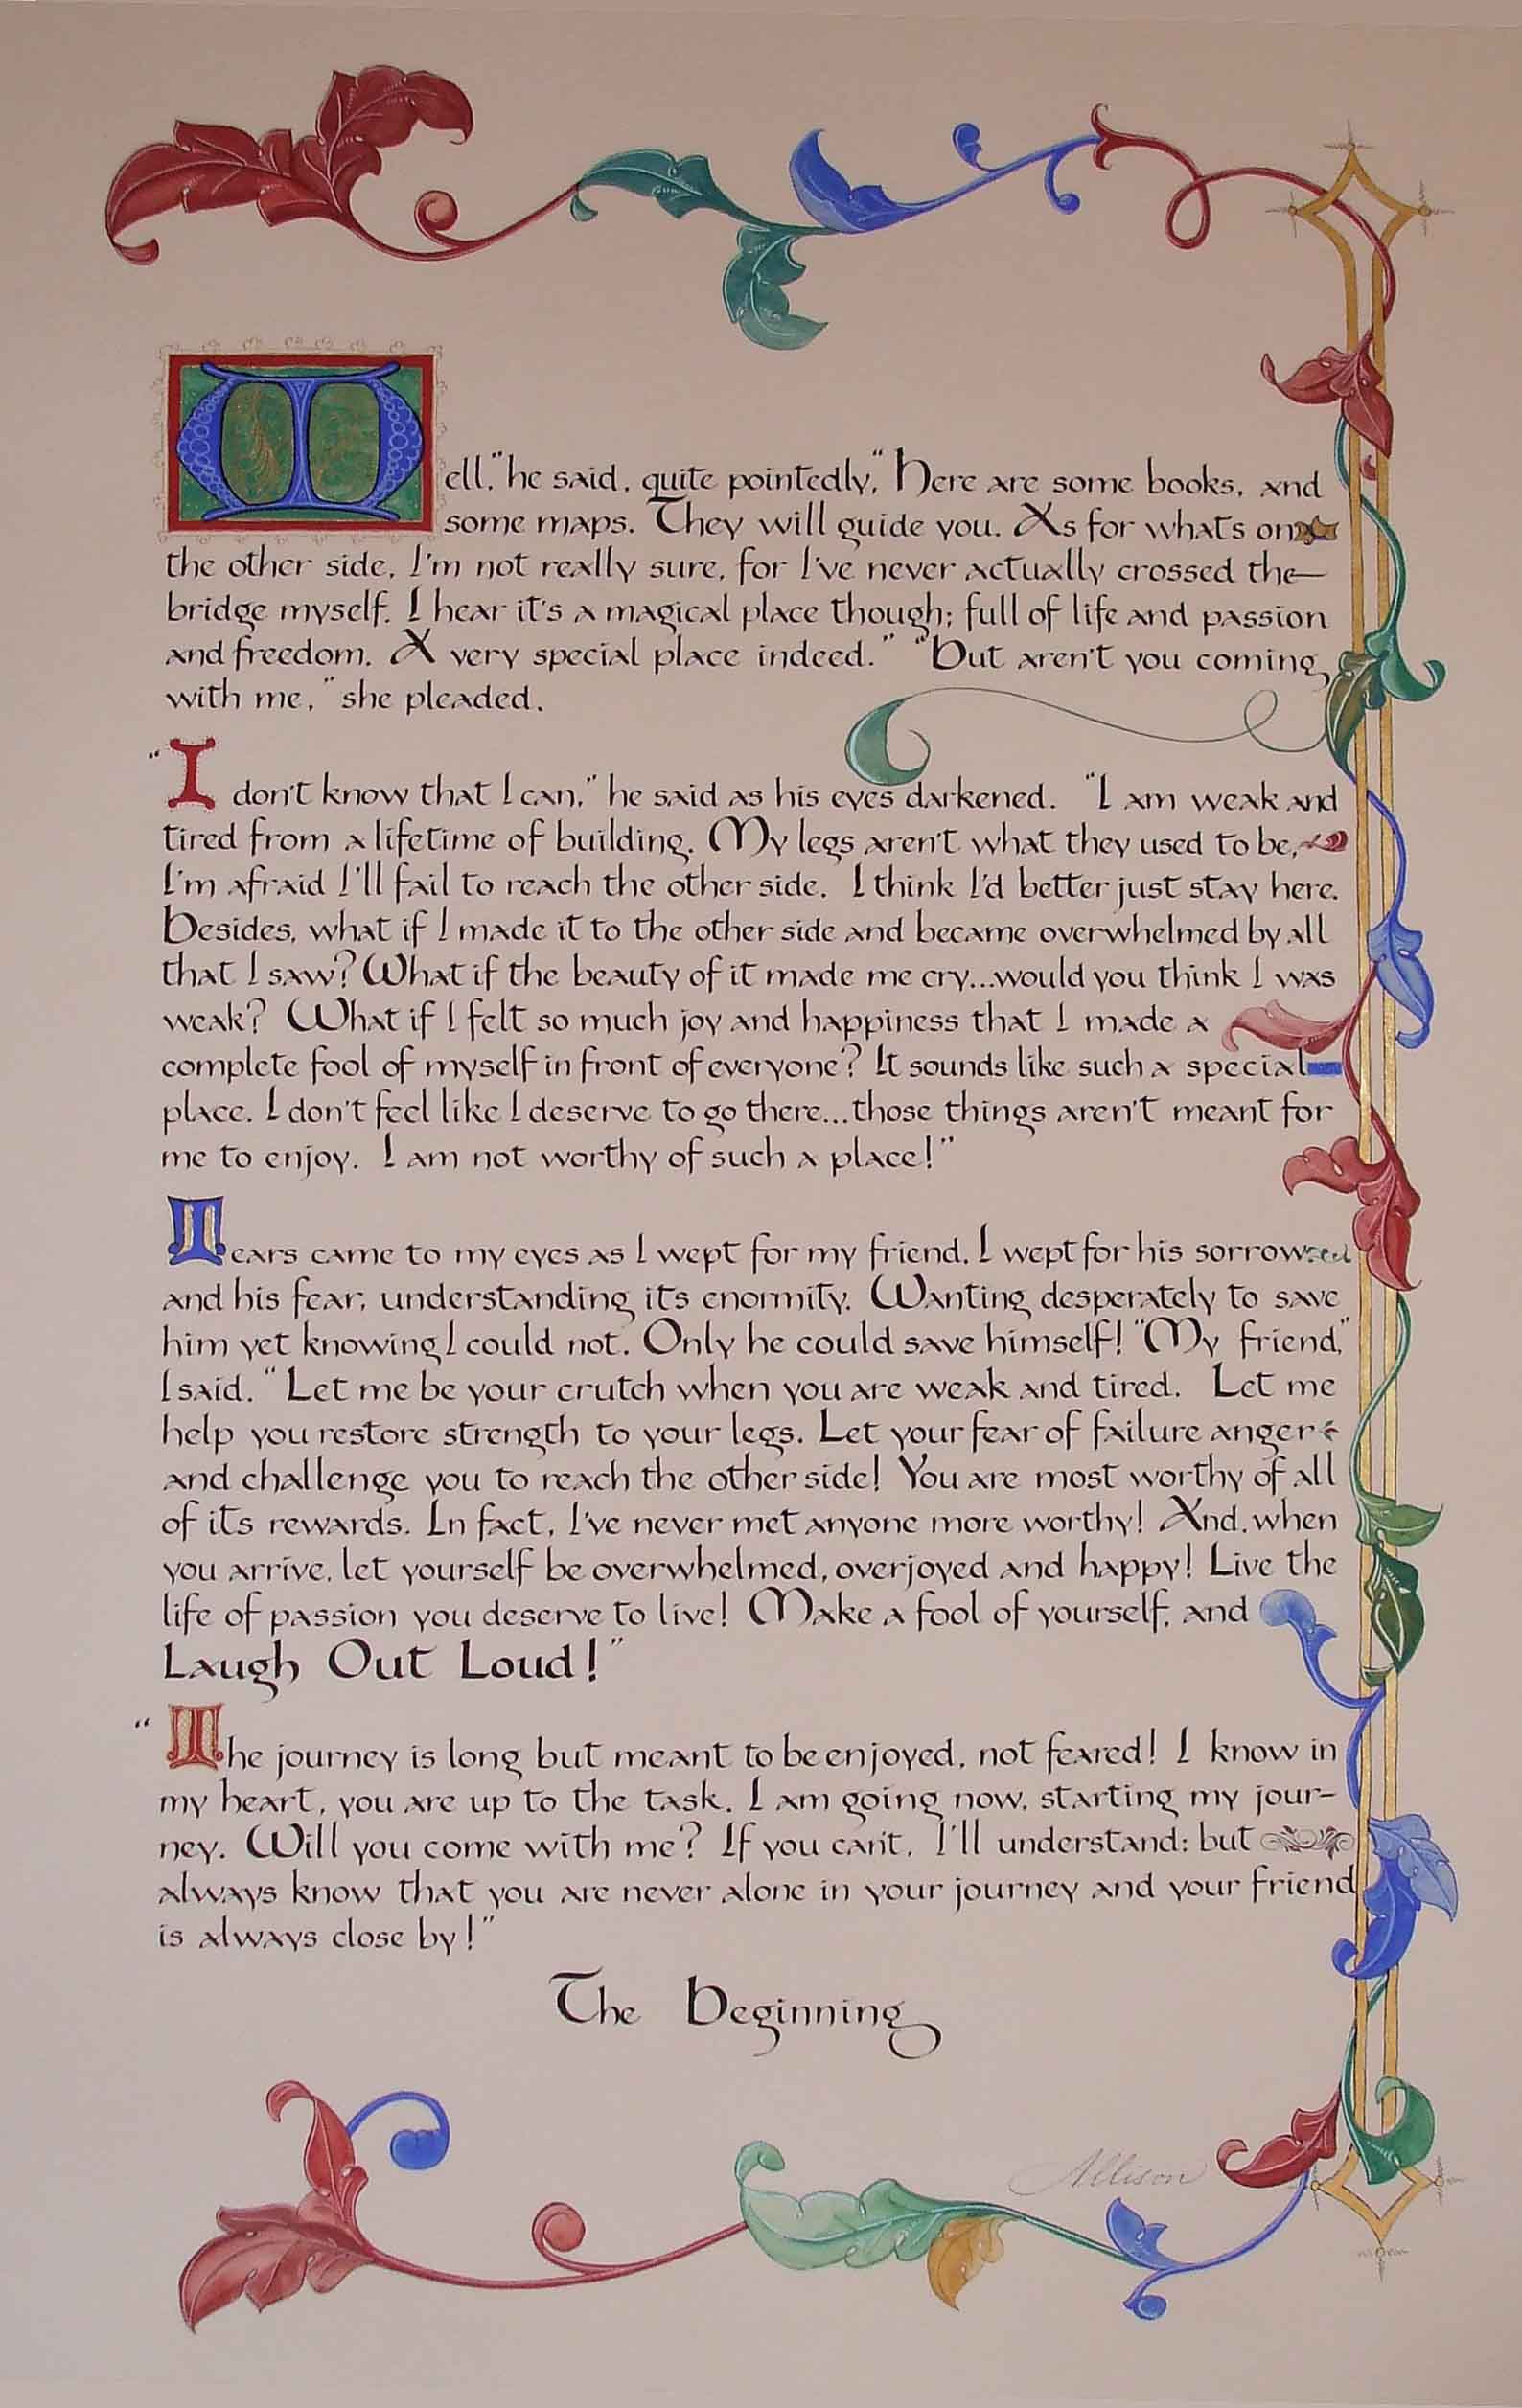 Well," he said, quite pointedly, "Here are some books, and
some maps. They will guide you. As for what's on
the other side, I'm not really sure, for I've never actually crossed the
bridge myself. I hear it's a magical place though; full of life and passion
and freedom. A very special place indeed." "But aren't you coming
with me," she pleaded.
"I don't know that I can," he said as his eyes darkened. "I am weak and
tired from a lifetime of building. My legs aren't what they used to be,
I'm afraid I'll fail to reach the other side. I think I'd better just stay here.
Besides, what if I made it to the other side and became overwhelmed by all
that I saw? What if the beauty of it made me cry...would you think I was
weak? What if I felt so much joy and happiness that I made a
complete fool of myself in front of everyone? It sounds like such a special
place. I don't feel like I deserve to go there...those things aren't meant for
me to enjoy. I am not worthy of such a place!"
Tears came to my eyes as I wept for my friend. I wept for his sorrow
and his fear, understanding its enormity. Wanting desperately to save
him yet knowing I could not. Only he could save himself! "My friend,"
I said. "Let me be your crutch when you are weak and tired. Let me
help you restore strength to your legs. Let your fear of failure anger
and challenge you to reach the other side! You are most worthy of all
of its rewards. In fact, I've never met anyone more worthy! And, when
you arrive, let yourself be overwhelmed, overjoyed and happy! Live the
life of passion you deserve to live! Make a fool of yourself, and
Laugh Out Loud!"
"The journey is long but meant to be enjoyed, not feared! I know in
my heart, you are up to the task. I am going now, starting my jour-
ney. Will you come with me? If you can't, I'll understand; but
always know that you are never alone in your journey and your friend
is always close by!"
The Beginning
Allison